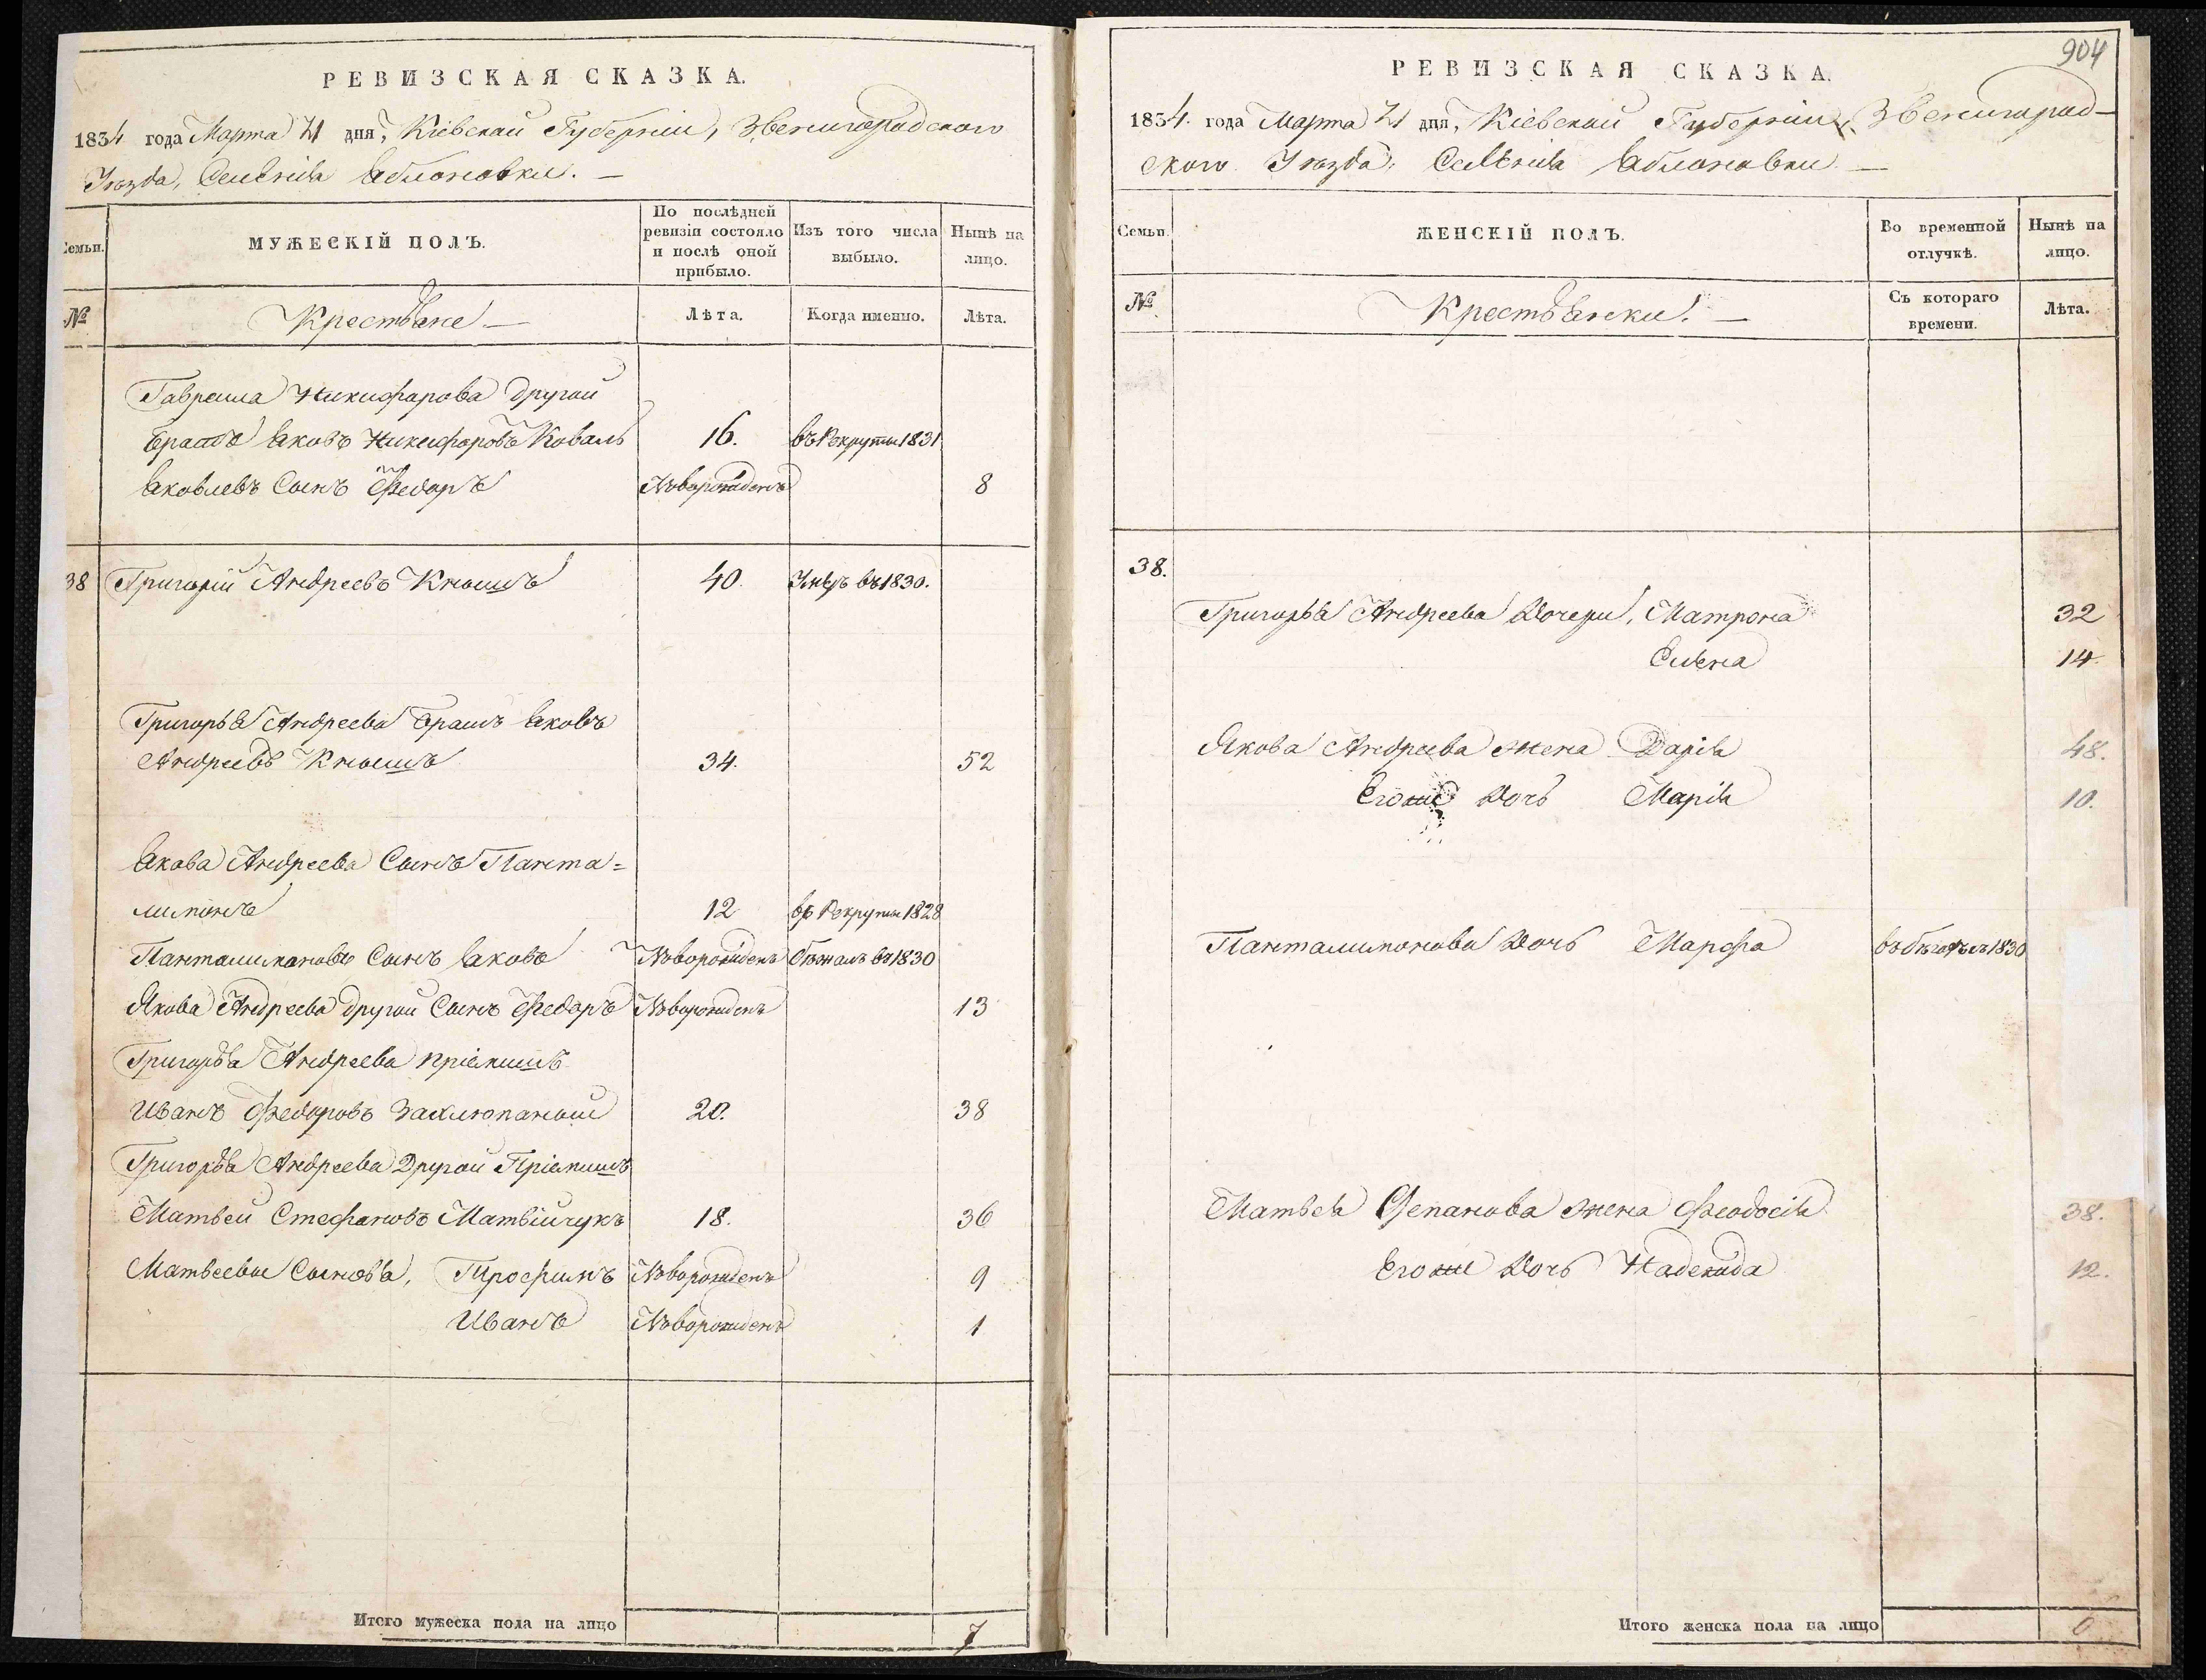 РЕВИЗСКАЯ СКАЗКА.
1834 года Марта 21 дня, Кіевской Губерніи, Звенигородского
Уѣзда, Селенія Яблоновки. —
Семьи.
МУЖЕСКІЙ ПОЛЪ.
По послѣдней
ревизіи состояло
и послѣ оной
прибыло.
Изъ того числа
выбыло.
Нынѣ на
лицо.
№
Крестьяне —
Лѣта.
Когда именно.
Лѣта.
Гаврила Никифорова другой
братъ Яковъ Никифоровъ Коваль 16. въ Рекруты 1831
Яковлевъ Сынъ Федоръ Новорожденъ 8
38 Григорій Андреевъ Кнышъ 40. Умеръ въ 1830.
Григорья Андреева братъ Яковъ
Андреевъ Кнышъ 34. 52
Якова Андреева Сынъ Панта=
лимонъ 12 въ Рекруты 1828
Панталимоновъ Сынъ Яковъ Новорожденъ бѣжалъ въ 1830
Якова Андреева другой Сынъ Федоръ Новорожденъ 13
Григорья Андреева пріемышъ
Иванъ Федоровъ Заклюпаный 20. 38
Григорья Андреева Другой Пріемышъ
Матвей Стефановъ Матвійчукъ 18. 36
Матвеевы Сыновья, Трофимъ Новорожденъ 9
Иванъ Новорожденъ 1
Итого мужеска пола на лицо 7
904
РЕВИЗСКАЯ СКАЗКА.
1834. года Марта 21 дня, Кіевской Губерніи, Звенигород-
ского Уѣзда, Селенія Яблоновки. —
Семьи.
ЖЕНСКІЙ ПОЛЪ.
Во временной
отлучкѣ.
Нынѣ на
лицо.
№
Крестьянски. —
Съ котораго
времени.
Лѣта.
38.
Григорья Андреева Дочери, Матрона 32
Елена 14.
Якова Андреева жена Дарія 48.
Егоже Дочь Марія 10.
Панталимонова Дочь Марфа въ бѣгахъ съ 1830
Матвея Степанова жена Феодосія 38.
Егоже Дочь Надежда 12.
Итого женска пола на лицо 6